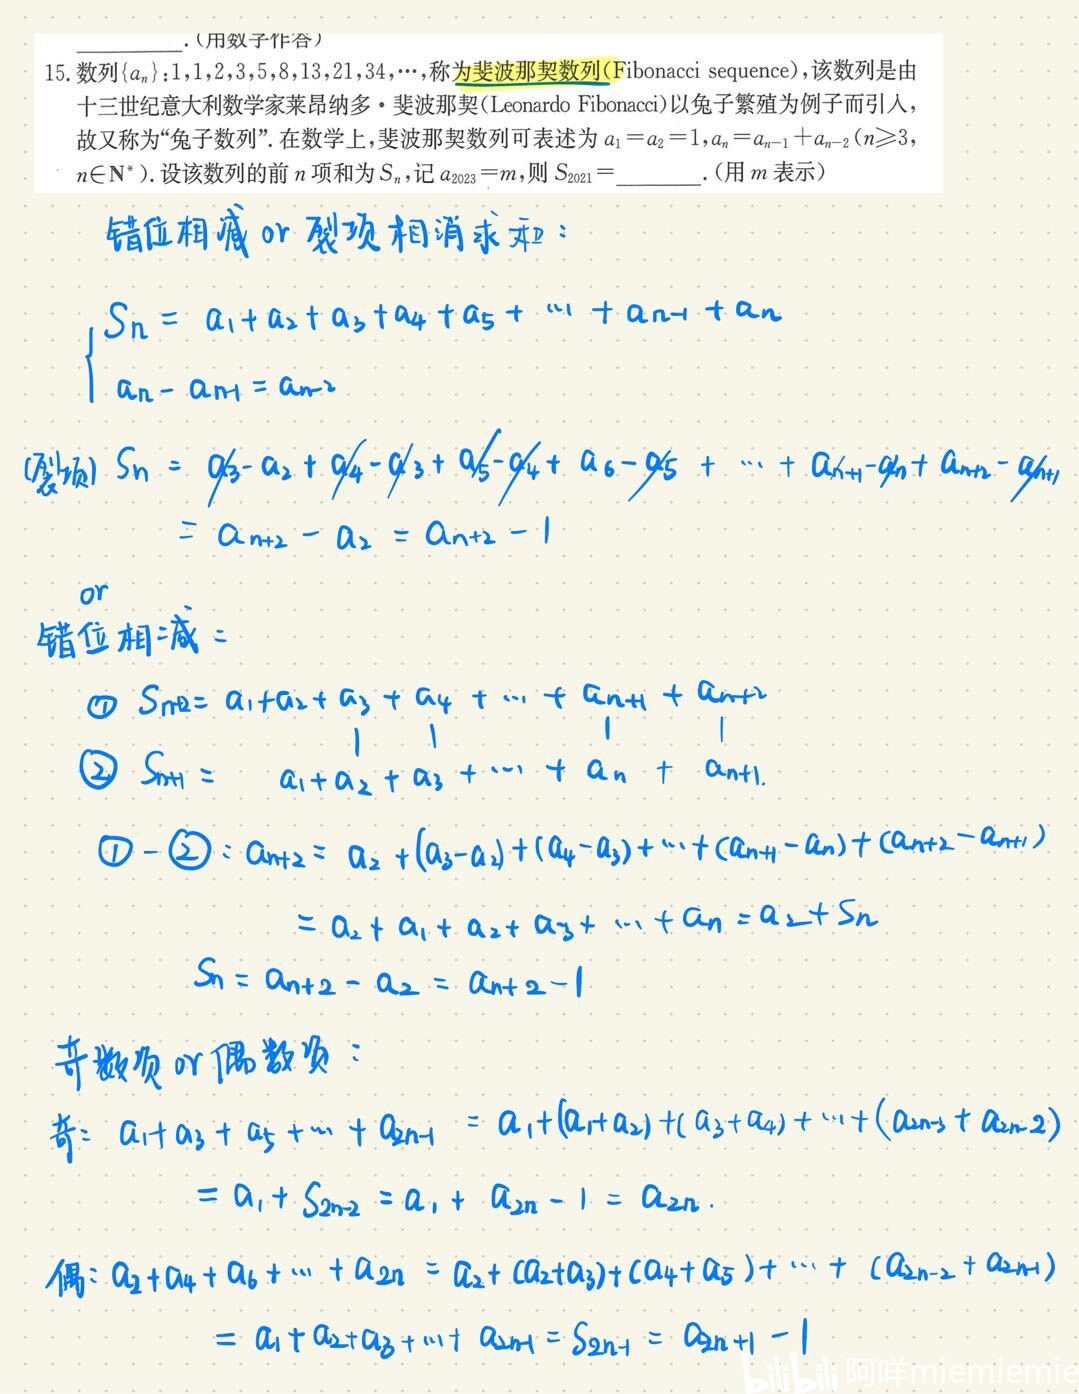 .(用数字作答)
15. 数列{aₙ}:1,1,2,3,5,8,13,21,34,…,称为斐波那契数列(Fibonacci sequence),该数列是由
十三世纪意大利数学家莱昂纳多·斐波那契(Leonardo Fibonacci)以兔子繁殖为例子而引入,
故又称为“兔子数列”.在数学上,斐波那契数列可表述为 a₁=a₂=1,aₙ=aₙ₋₁+aₙ₋₂(n≥3,
n∈N*).设该数列的前 n 项和为 Sₙ,记 a₂₀₂₃=m,则 S₂₀₂₁=________.(用 m 表示)
错位相减 or 裂项相消求和:
Sₙ = a₁+a₂+a₃+a₄+a₅+…+aₙ₋₁+aₙ
aₙ-aₙ₋₁=aₙ₋₂
(裂项) Sₙ = a₃-a₂+a₄-a₃+a₅-a₄+a₆-a₅+…+aₙ₊₁-aₙ+aₙ₊₂-aₙ₊₁
= aₙ₊₂-a₂=aₙ₊₂-1
or
错位相减:
① Sₙ₊₂=a₁+a₂+a₃+a₄+…+aₙ₊₁+aₙ₊₂
② Sₙ₊₁= a₁+a₂+a₃+…+aₙ+aₙ₊₁.
①-②:aₙ₊₂=a₂+(a₃-a₂)+(a₄-a₃)+…+(aₙ₊₁-aₙ)+(aₙ₊₂-aₙ₊₁)
=a₂+a₁+a₂+a₃+…+aₙ=a₂+Sₙ
Sₙ=aₙ₊₂-a₂=aₙ₊₂-1
奇数项 or 偶数项:
奇: a₁+a₃+a₅+…+a₂ₙ₋₁ =a₁+(a₁+a₂)+(a₃+a₄)+…+(a₂ₙ₋₃+a₂ₙ₋₂)
=a₁+S₂ₙ₋₂=a₁+a₂ₙ-1=a₂ₙ.
偶: a₂+a₄+a₆+…+a₂ₙ=a₂+(a₂+a₃)+(a₄+a₅)+…+(a₂ₙ₋₂+a₂ₙ₋₁)
=a₁+a₂+a₃+…+a₂ₙ₋₁=S₂ₙ₋₁=a₂ₙ₊₁-1
bilibili 阿咩miemiemie